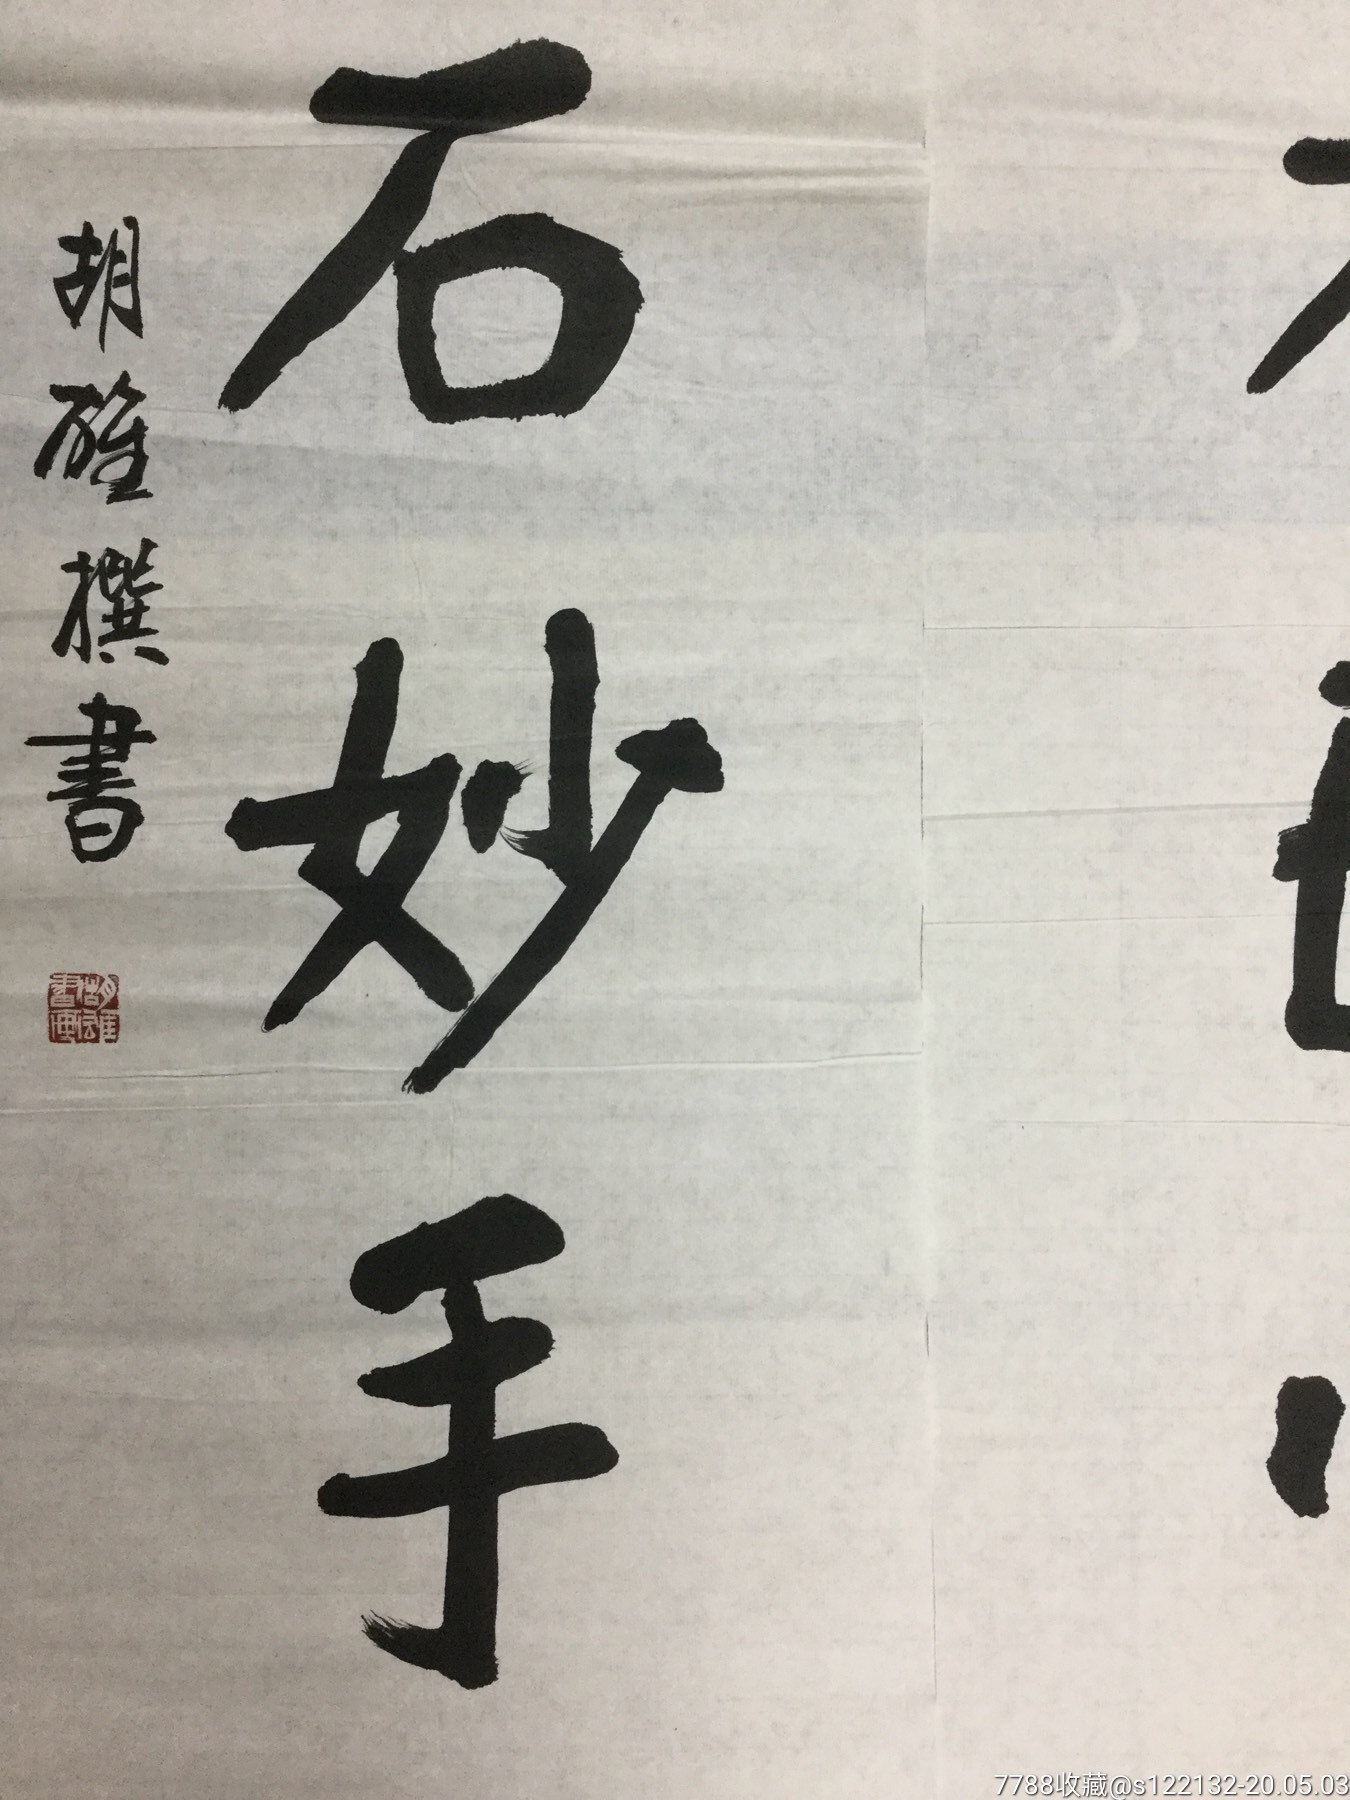 石妙手
胡雄撰書
7788收藏@s122132-20.05.03